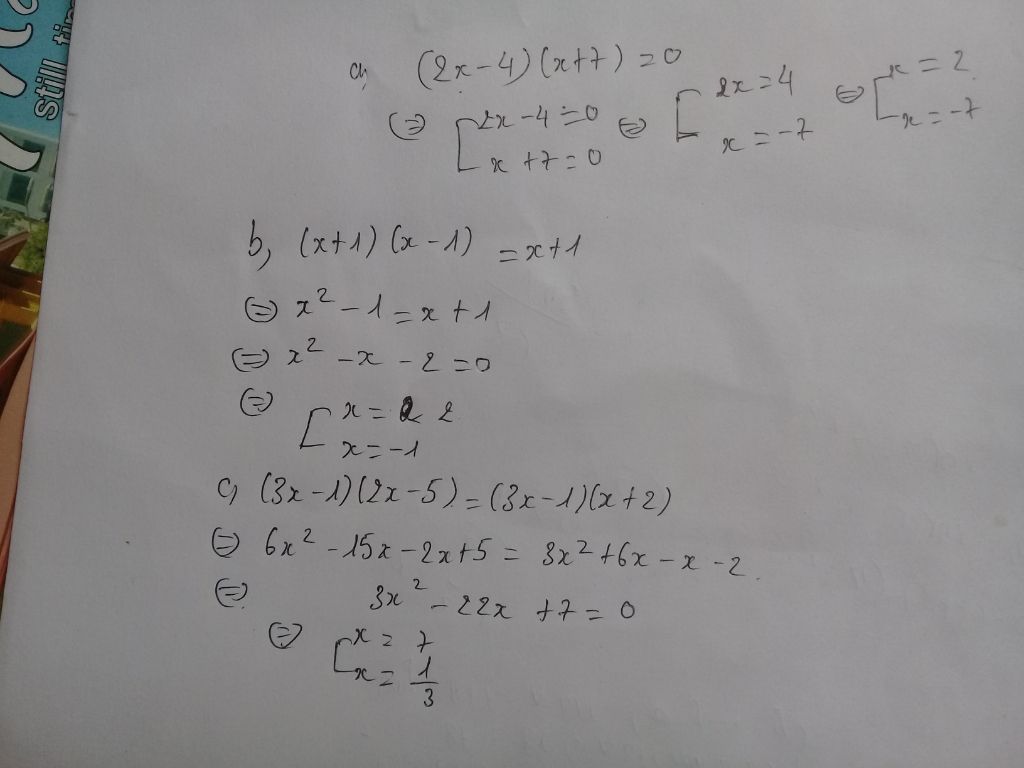 still ti
a, (2x-4)(x+7) = 0
⇔ [ 2x-4=0 ⇔ [ 2x=4 ⇔ [ x=2
x+7=0 x=-7 x=-7
b, (x+1)(x-1) = x+1
⇔ x² - 1 = x + 1
⇔ x² - x - 2 = 0
⇔ [ x = 2
x = -1
c, (3x-1)(2x-5) = (3x-1)(x+2)
⇔ 6x² - 15x - 2x + 5 = 3x² + 6x - x - 2
⇔ 3x² - 22x + 7 = 0
⇔ [ x = 7
x = 1/3